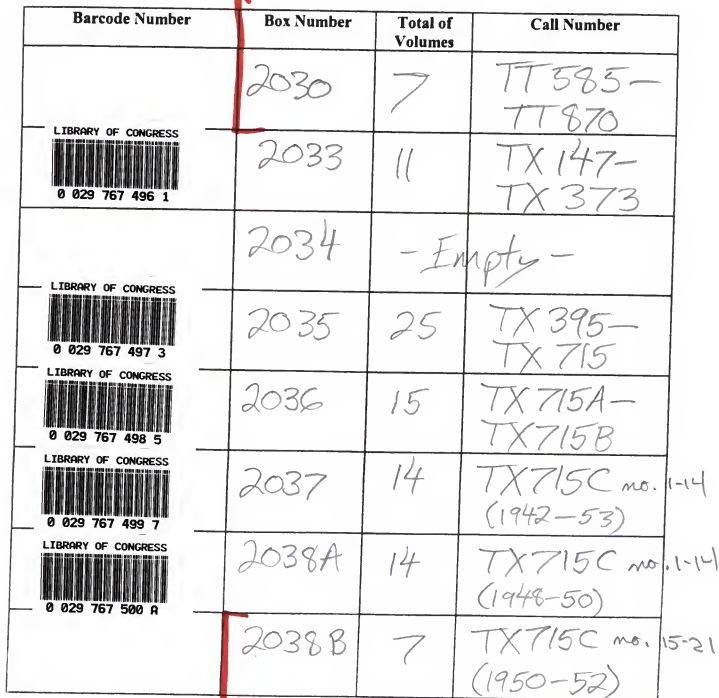 Barcode Number Box Number Total of Volumes Call Number
2030 7 TT585-
TT870
LIBRARY OF CONGRESS
0 029 767 496 1
2033 11 TX147-
TX373
2034 - Empty -
LIBRARY OF CONGRESS
0 029 767 497 3
2035 25 TX395-
TX715
LIBRARY OF CONGRESS
0 029 767 498 5
2036 15 TX715A-
TX715B
LIBRARY OF CONGRESS
0 029 767 499 7
2037 14 TX715C no. 1-14
(1942-53)
LIBRARY OF CONGRESS
0 029 767 500 A
2038A 14 TX715C no. 1-14
(1948-50)
2038B 7 TX715C no. 15-21
(1950-52)